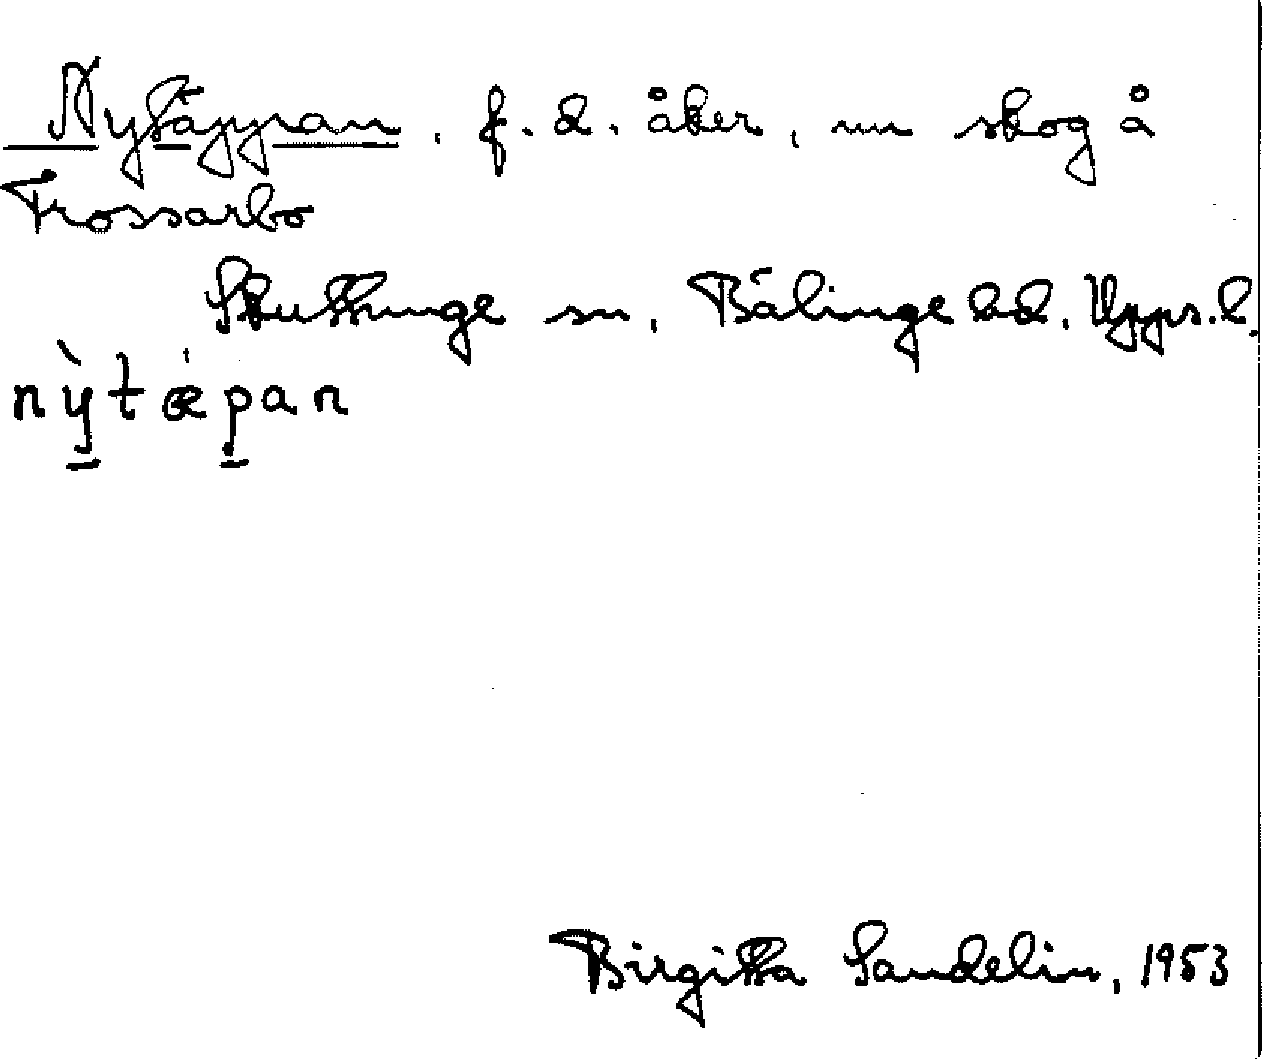 Nytäppan, f.d. åker, nu skog å
Trossarbo
Skuttunge sn, Bälinge hd, Upps.l.
nỳtæ̀pan
Birgitta Sandelin, 1953